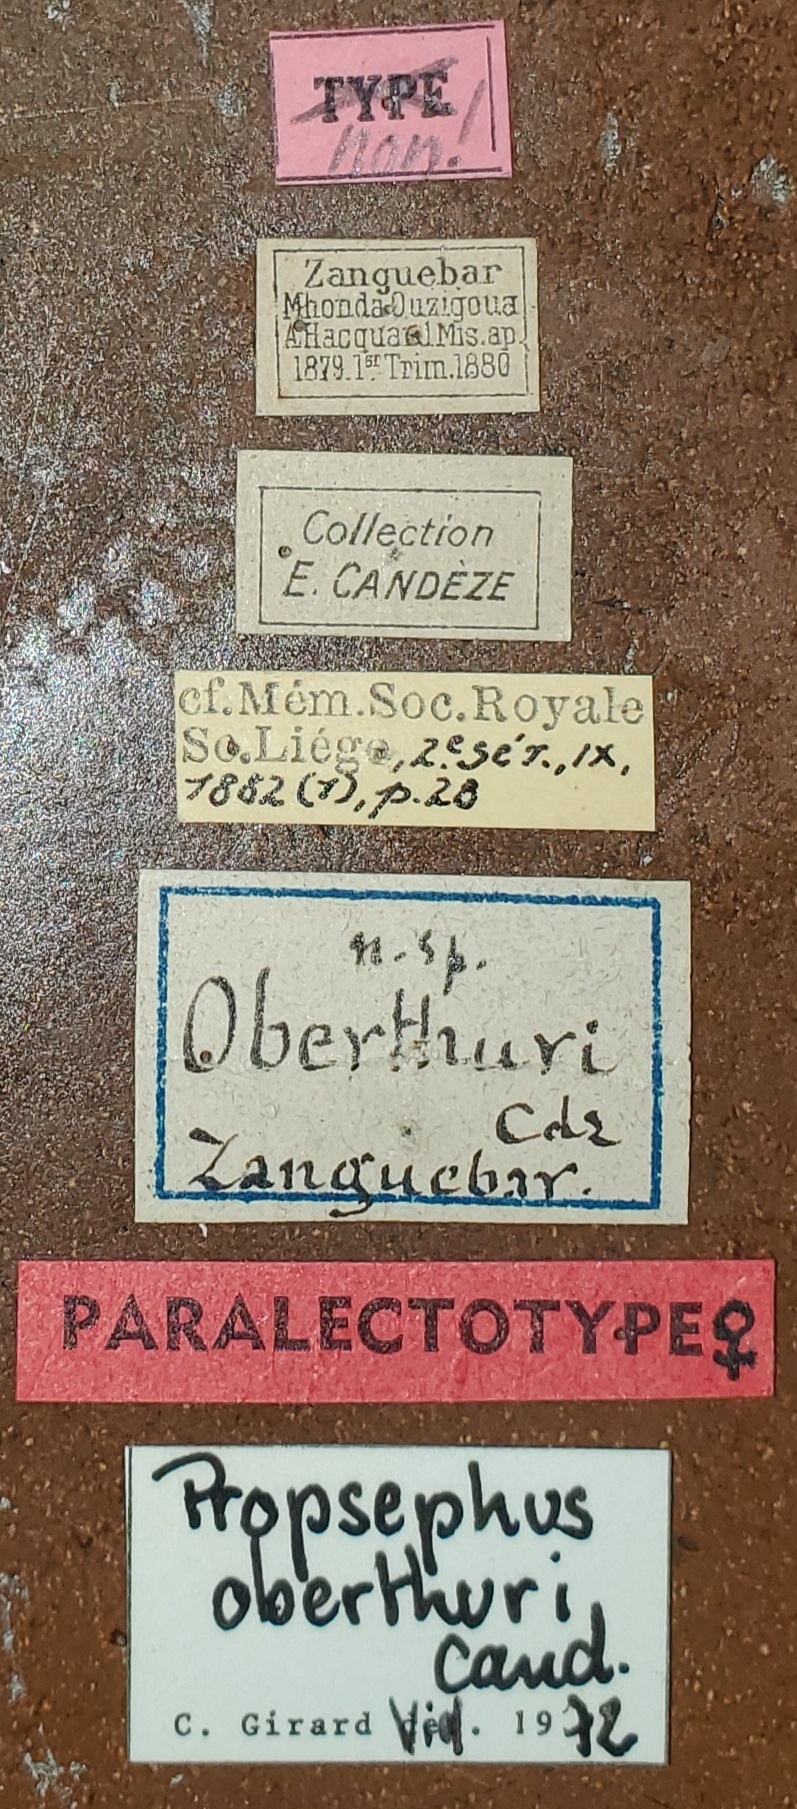 TYPE
non!
Zanguebar
Mhonda Ouzigoua
A.Hacquard Mis.ap.
1879.1er Trim.1880
Collection
E. CANDÈZE
cf.Mém.Soc.Royale
Sc.Liége, 2e sér., IX,
1882 (1), p.28
n. sp.
Oberthuri
Cdz
Zanguebar.
PARALECTOTYPE♀
Propsephus
oberthuri
cand.
C. Girard Vid. 1972